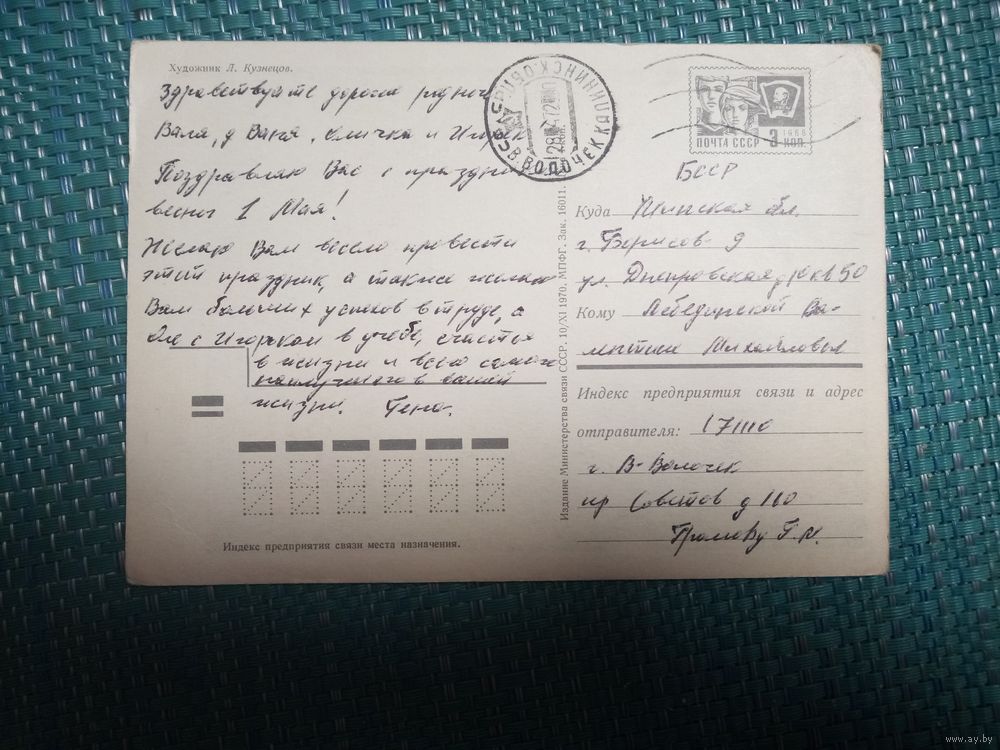 Художник Л. Кузнецов.
Здравствуйте дорогие
Валя, д Ваня, Олечка и Игорёк
Поздравляю Вас с праздни
весной 1 Мая!
Желаю Вам весело провести
этот праздник, а также желаю
Вам больших успехов в труде, а
Оле с Игорьком в учёбе, счастья
в жизни и всего самого
наилучшего в вашей
жизни. Гена.
Индекс предприятия связи места назначения.
КАЛИНИНСК. ОБЛ.
В. ВОЛОЧЕК
ПОЧТА СССР
1966
3 КОП.
БССР
Издание Министерства связи СССР. 10/XI 1970. МПФГ. Зак. 16011.
Куда Минская обл.
г. Борисов-9
ул. Днепровская, кв 50
Кому Лебединской Ва-
лентине Михайловне
Индекс предприятия связи и адрес
отправителя: 171110
г. В-Волочек
пр Советов д 110
Громову Г. И.
www.ay.by